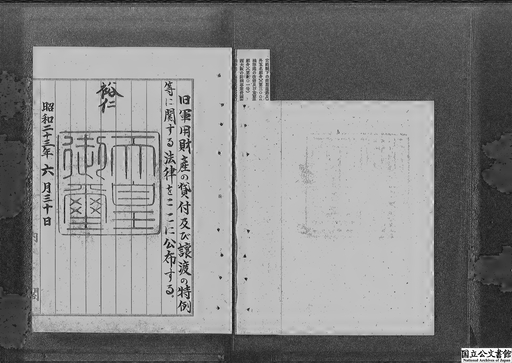 旧軍用財産の貸付及び譲渡の特例
等に関する法律をここに公布する。
裕仁
天皇
御璽
昭和二十三年六月三十日
内閣
国立公文書館
National Archives of Japan